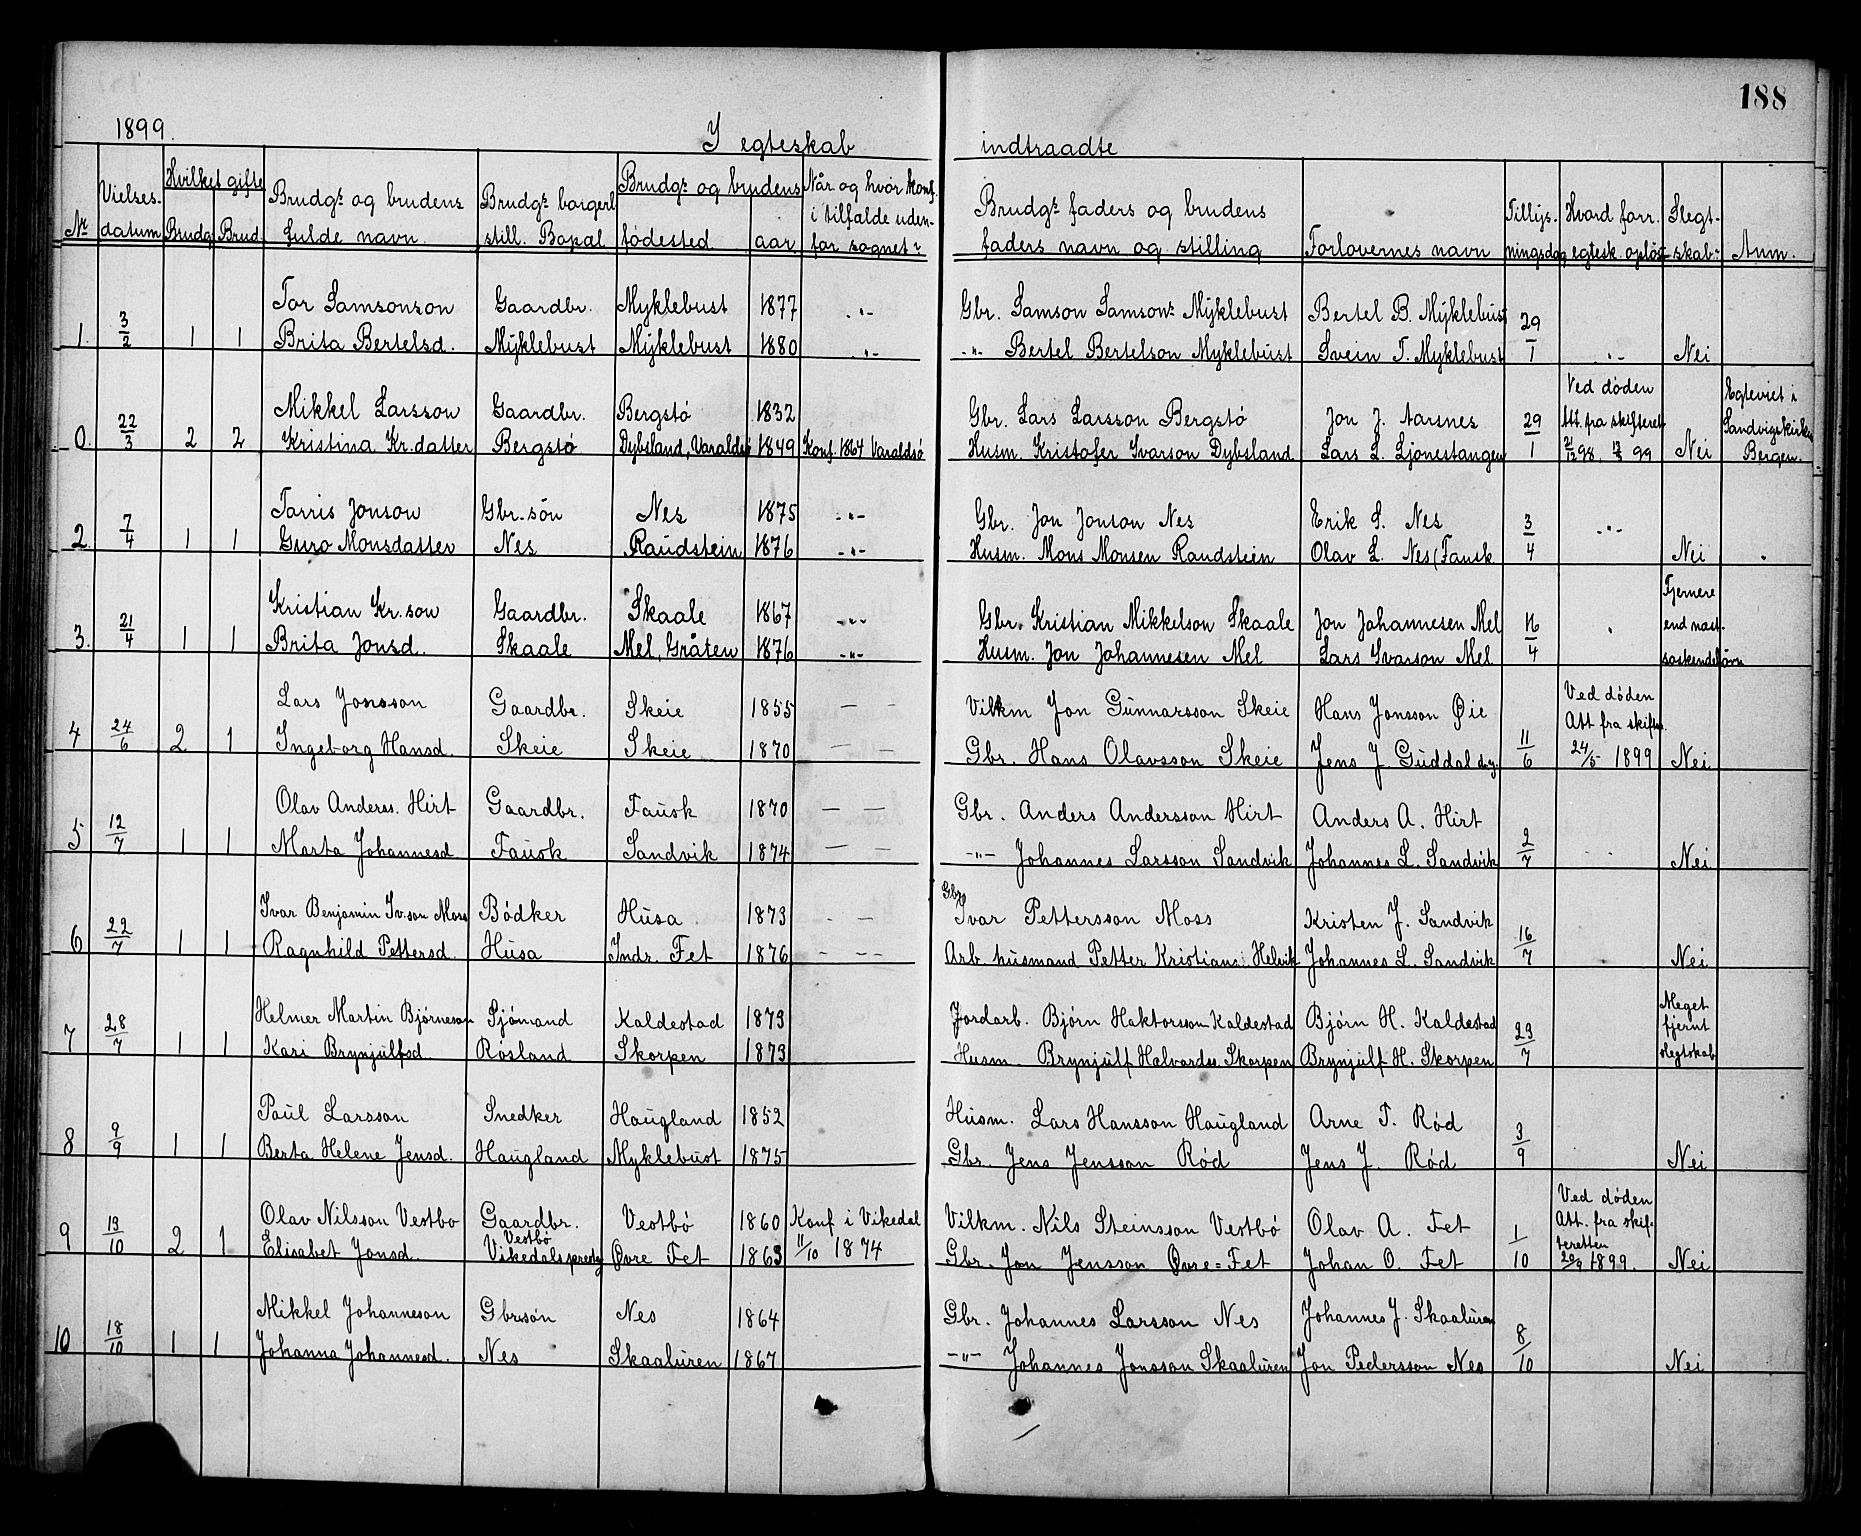 188
1899. I egteskab indtraadte
Nr. Vielses-datum Hvilket gifte Brudg. Brud. Brudgs og brudens fulde navn. Brudgs borgerl. still. Bopæl Brudgs og brudens fødested aar Når og hvor konf. i tilfælde uden-for sognet? Brudgs faders og brudens faders navn og stilling Forlovernes navn Tillys-ningsdag Hvord. forr. egtesk. opløst Slegt-skab? Anm.
Tor Samsonson Gaardbr. Myklebust 1877 -"- Gbr. Samson Samsons Myklebust Bertel B. Myklebust
1. 3/2 1 1 Brita Bertelsd. Myklebust Myklebust 1880 -"- -"- Bertel Bertelson Myklebust Svein T. Myklebust 29/1 -"- Nei
Mikkel Larsson Gaardbr. Bergstø 1832 Gbr. Lars Larsson Bergstø Jon J. Aarsnes Ved døden Att. fra skifterett Egteviet i Sandvigskirken
0. 22/3 2 2 Kristina Kr.datter Bergstø Dybsland, Varaldsø 1849 Konf. 1864 Varaldsø Husm. Kristofer Ivarson Dybsland Lars L. Ljonestangen 29/1 21/12 98, 13/3 99 Nei Bergen.
Torris Jonson Gbr. søn Nes 1875 -"- Gbr. Jon Jonson Nes Erik S. Nes
2. 7/4 1 1 Guro Monsdatter Nes Raudstein 1876 -"- Husm. Mons Monsen Raudstein Olav L. Nes (Fausk 3/4 -"- Nei
Kristian Kr.son Gaardbr. Skaale 1867 -"- Gbr. Kristian Mikkelson Skaale Jon Johannesen Mel Fjernere end næst-
3. 21/4 1 1 Brita Jonsd. Skaale Mel, Gråten 1876 -"- Husm. Jon Johannesen Mel Lars Ivarson Mel 16/4 søskendebørn
Lars Jonsson Gaardbr. Skeie 1855 — — Vilkm Jon Gunnarsson Skeie Hans Jonsson Øie Ved døden Att. fra skiften.
4 24/6 2 1 Ingeborg Hansd. Skeie Skeie 1870 — — Gbr. Hans Olavsson Skeie Jens J. Guddal 11/6 24/5 1899 Nei
Olav Anders. Hirt Gaardbr. Fausk 1870 — — Gbr. Anders Andersson Hirt Anders A. Hirt
5 12/7 1 1 Marta Johannesd Fausk Sandvik 1874 — — -"- Johannes Larsson Sandvik Johannes L. Sandvik 2/7 - - Nei
Ivar Benjamin Iv.son Moss Bødker Husa 1873 - — Gbr. Ivar Pettersson Moss Kristen J. Sandvik
6 22/7 1 1 Ragnhild Pettersd. Husa Indr. Fet 1876 - — Arb. husmand Petter Kristians. Helvik Johannes L. Sandvik 16/7 Nei
Helmer Martin Bjørneson Sjømand Kaldestad 1873 Jordarb. Bjørn Haktorsson Kaldestad Bjørn H. Kaldestad Meget fjernt
7 28/7 1 1 Kari Brynjulfsd. Røsland Skorpen 1873 Husm. Brynjulf Halvards. Skorpen Brynjulf H. Skorpen 23/7 slegtskab
Paul Larsson Snedker Haugland 1852 Husm. Lars Hansson Haugland Arne T. Rød
8 9/9 1 1 Berta Helene Jensd. Haugland Myklebust 1875 Gbr. Jens Jensson Rød Jens J. Rød 3/9 Nei
Olav Nilsson Vestbø Gaardbr. Vestbø 1860 Konf i Vikedal Vilkm. Nils Steinsson Vestbø Olav A. Fet Ved døden Att. fra skif-teretten
9 13/10 2 1 Elisabet Jonsd. Vestbø Vikedals prestg Øvre Fet 1863 11/10 1874 Gbr. Jon Jensson Øvre=Fet Johan O. Fet 1/10 20/9 1899. Nei
Mikkel Johanneson Gbrsøn Nes 1864 Gbr. Johannes Larsson Nes Johannes J. Skaaluren
10 18/10 1 1 Johanna Johannesd. Nes Skaaluren 1867 -"- Johannes Jonsson Skaaluren Jon Pedersson Nes 8/10 Nei